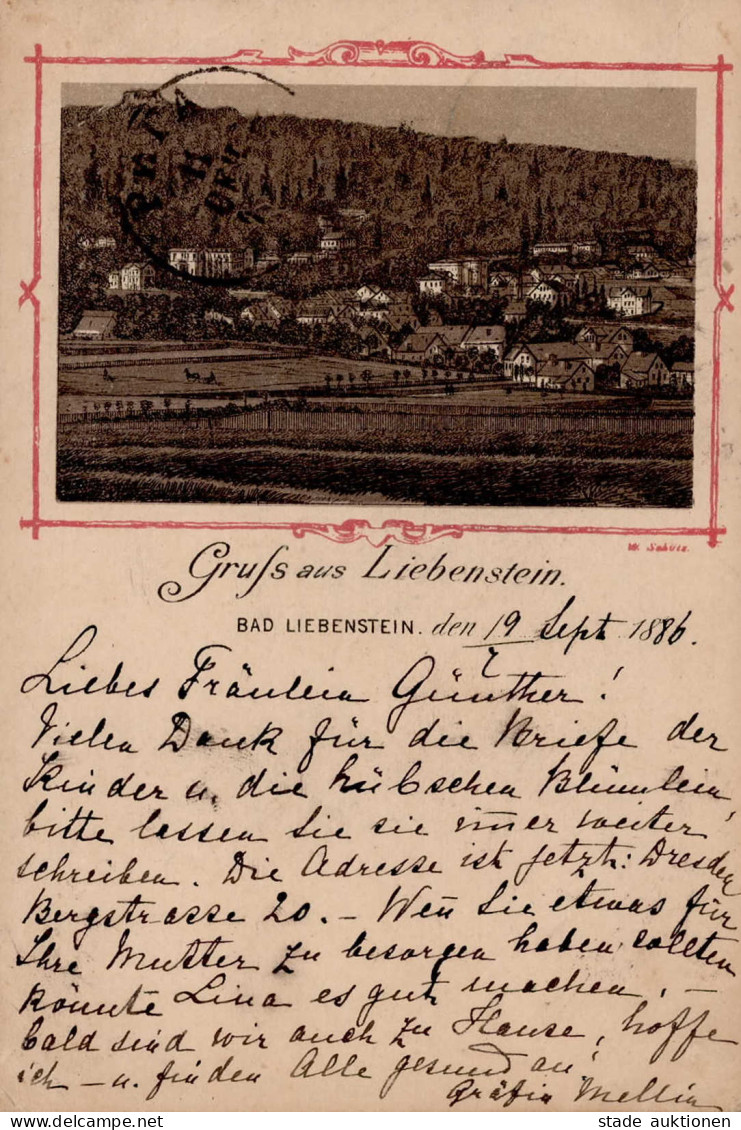 W. Schütz.
Gruss aus Liebenstein.
BAD LIEBENSTEIN. den 19 Sept 1886.
Liebes Fräulein Günther!
Vielen Dank für die Briefe der
Kinder u. die hübschen Blümlein,
bitte lassen Sie sie im̄er weiter
schreiben. Die Adresse ist jetzt: Dresden
Bergstrasse 20. – Wen̄ Sie etwas für
Ihre Mutter zu besorgen haben sollten
könnte Lina es gut machen. –
bald sind wir auch zu Hause, hoffe
ich – u. finden Alle gesund an!
Gräfin Mellin
stade auktionen